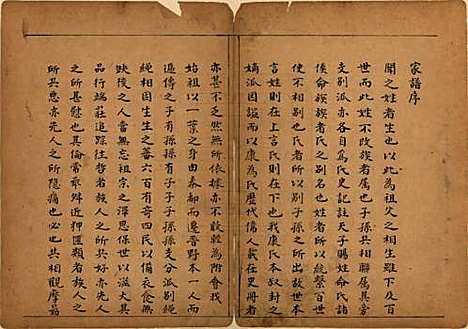 家譜序
聞之姓者生也以此為祖父之相生雖下及百
世而此姓不改族者屬也子孫共相聯屬其旁
支別派亦各自為氏史記註天子賜姓命氏諸
侯命族族者氏之別名也姓者所以統繫百世
使不相別也氏者所以別子孫之所出故世本
言姓則在上言氏則在下也我康氏本叔封之
嫡派因謚而以康為氏歷代偉人載在史冊者
亦甚不乏然無所依據亦不敢輕為附會我
始祖以一筆之身由秦郡而遷晉野本一人而
遞傳之子有孫孫有子子子孫孫支分派別繩
繩相因生生之蕃六百有奇四民以備衣食無
缺後之人當無忘祖宗之澤思保世以滋大其
品行端莊追踪往哲者族人之所共好亦先人
之所甚慰也其倫常乖舛近押匪類者族人之
所共惡亦先人之所隱痛也族人相觀摩為